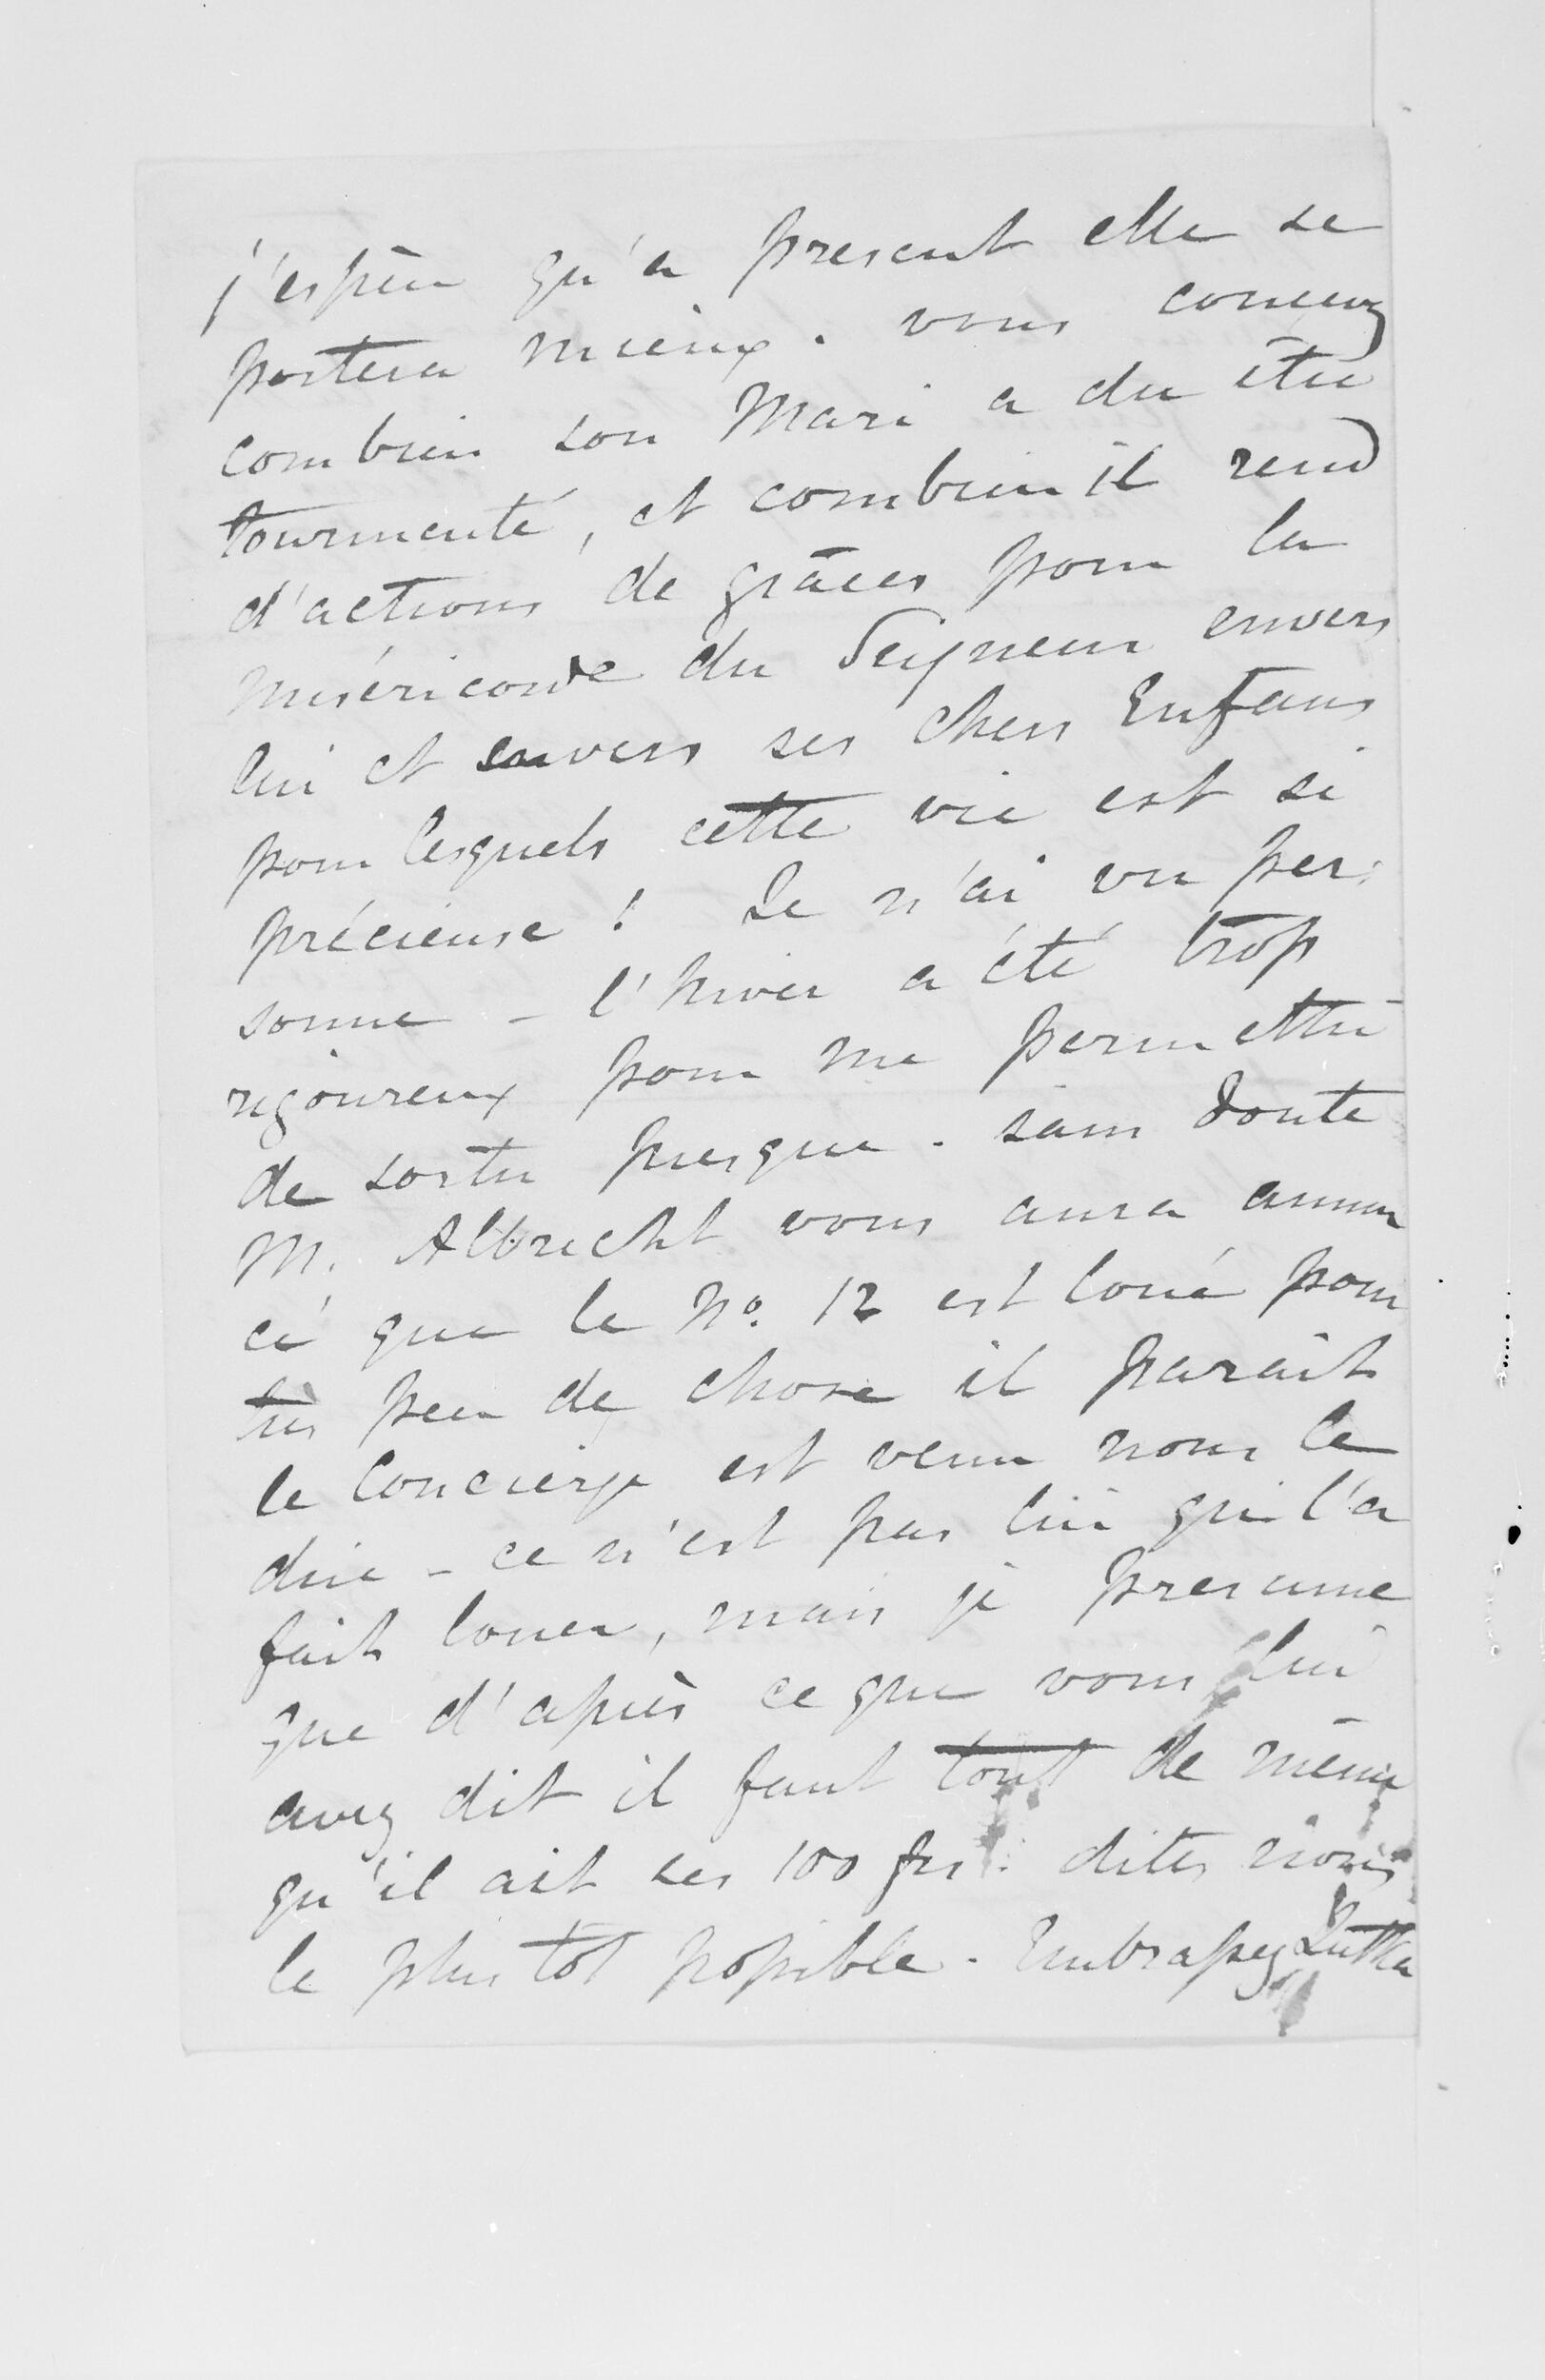 j'espère qu'a present elle se
portera mieux. vous concevez
combien son Mari a du être
tourmenté, et combien il rend
d'actions de grâces pour la
miséricorde du Seigneur envers
lui et envers ses chers Enfans
pour lesquels cette vie est si
précieuse! Je n'ai vu per:
sonne - l'hiver a été trop
rigoureux pour me permettre
de sortir presque. sans doute
M. Albrecht vous aura annon
cé que le No. 12 est loué pour
très peu de chose il parait
le Concierge est venu nous le
dire - ce n'est pas lui qui l'a
fait louer, mais je presume
que d'après ce que vous lui
avez dit il faut tout de même
qu'il ait ses 100 frs. dites nous
le plus tôt possible. Embrassez